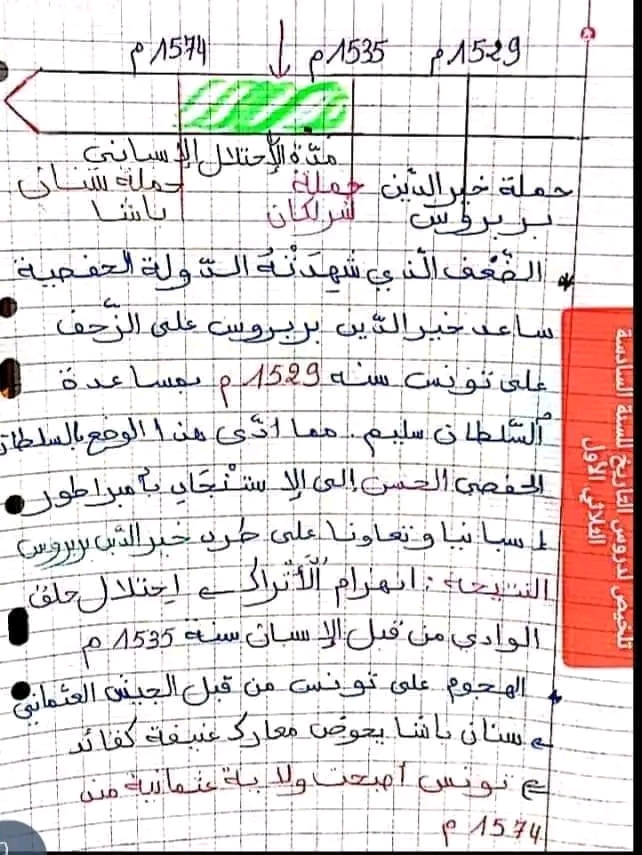 1529م 1535م 1574م
مدّة الإحتلال الإسباني
حملة خير الدّين حملة حملة سنان
بربروس شرلكان باشا
الضّعف الّذي شهدَتْهُ الدّولة الحفصية
ساعد خير الدّين بربروس على الزّحف
على تونس سنه 1529م بمساعدة
السّلطان سليم. مما ادّى هذا الوضع بالسلطان
الحفصي الحسن إلى الإستنْجاد بأمبراطور
إسبانيا وتعاونا على طرد خير الدّين بربروس
النتيجة: انهزام الأتراك احتلال حلق
الوادي من قبل الإسبان سنة 1535م
الهجوم على تونس من قبل الجيش العثماني
سنان باشا يخوض معارك عنيفة كقائد
تونس أصبحت ولاية عثمانية منذ
1574م
تلخيص لدروس التاريخ للسنة السادسة
الثلاثي الأول